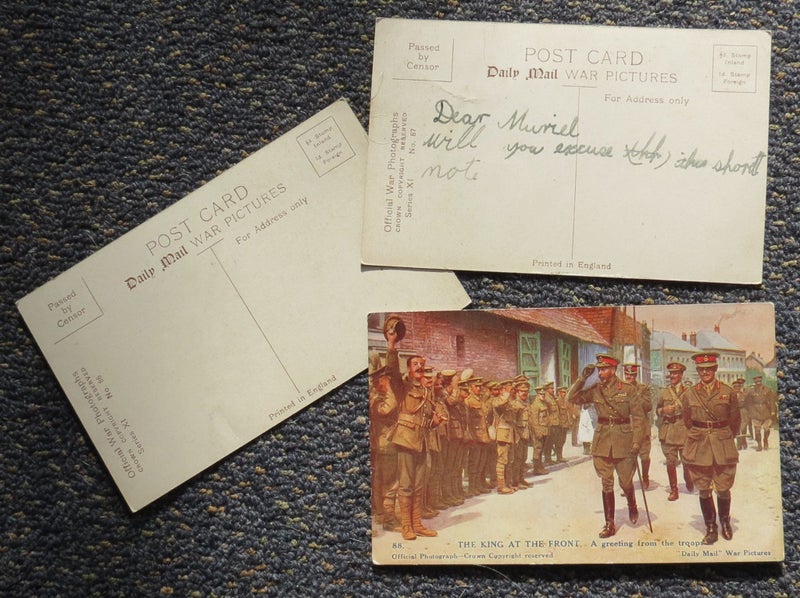 Passed
by
Censor
POST CARD
Daily Mail WAR PICTURES
For Address only
½d. Stamp
Inland
1d. Stamp
Foreign
Official War Photographs
CROWN COPYRIGHT RESERVED
Series XI No. 67
Dear Muriel
will you excuse this short
note
Printed in England
Passed
by
Censor
POST CARD
Daily Mail WAR PICTURES
For Address only
½d. Stamp
Inland
1d. Stamp
Foreign
Official War Photographs
CROWN COPYRIGHT RESERVED
Series XI No.
Printed in England
88. THE KING AT THE FRONT. A greeting from the troops.
Official Photograph—Crown Copyright reserved "Daily Mail" War Pictures